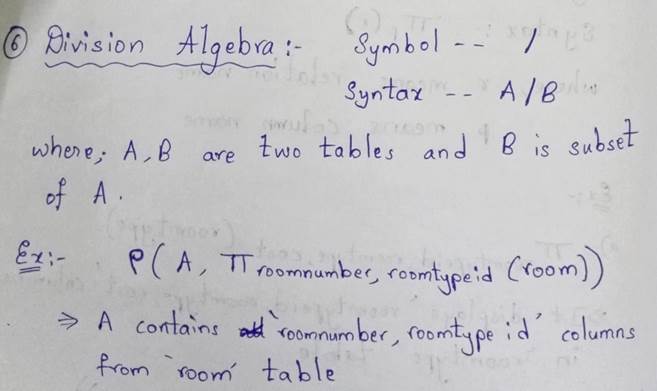 ⑥ Division Algebra :- Symbol -- /
Syntax -- A/B
where; A, B are two tables and B is subset
of A.
Ex:- ρ(A, π roomnumber, roomtypeid (room))
⇒ A contains 'roomnumber, roomtype id' columns
from 'room' table